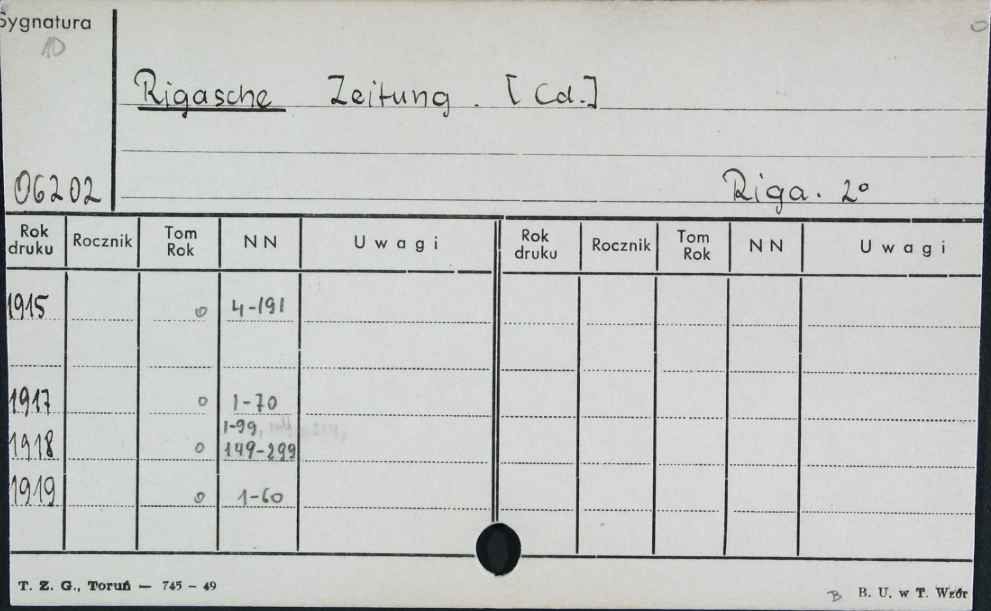 Sygnatura
10
Rigasche Zeitung. [Cd.]
06202
Riga. 2°
Rok druku Rocznik Tom Rok NN Uwagi Rok druku Rocznik Tom Rok NN Uwagi
1915 o 4-191
1917 o 1-70
1-99,
1918 o 149-299
1919 o 1-60
T. Z. G., Toruń — 745 - 49
B B. U. w T. Wzór